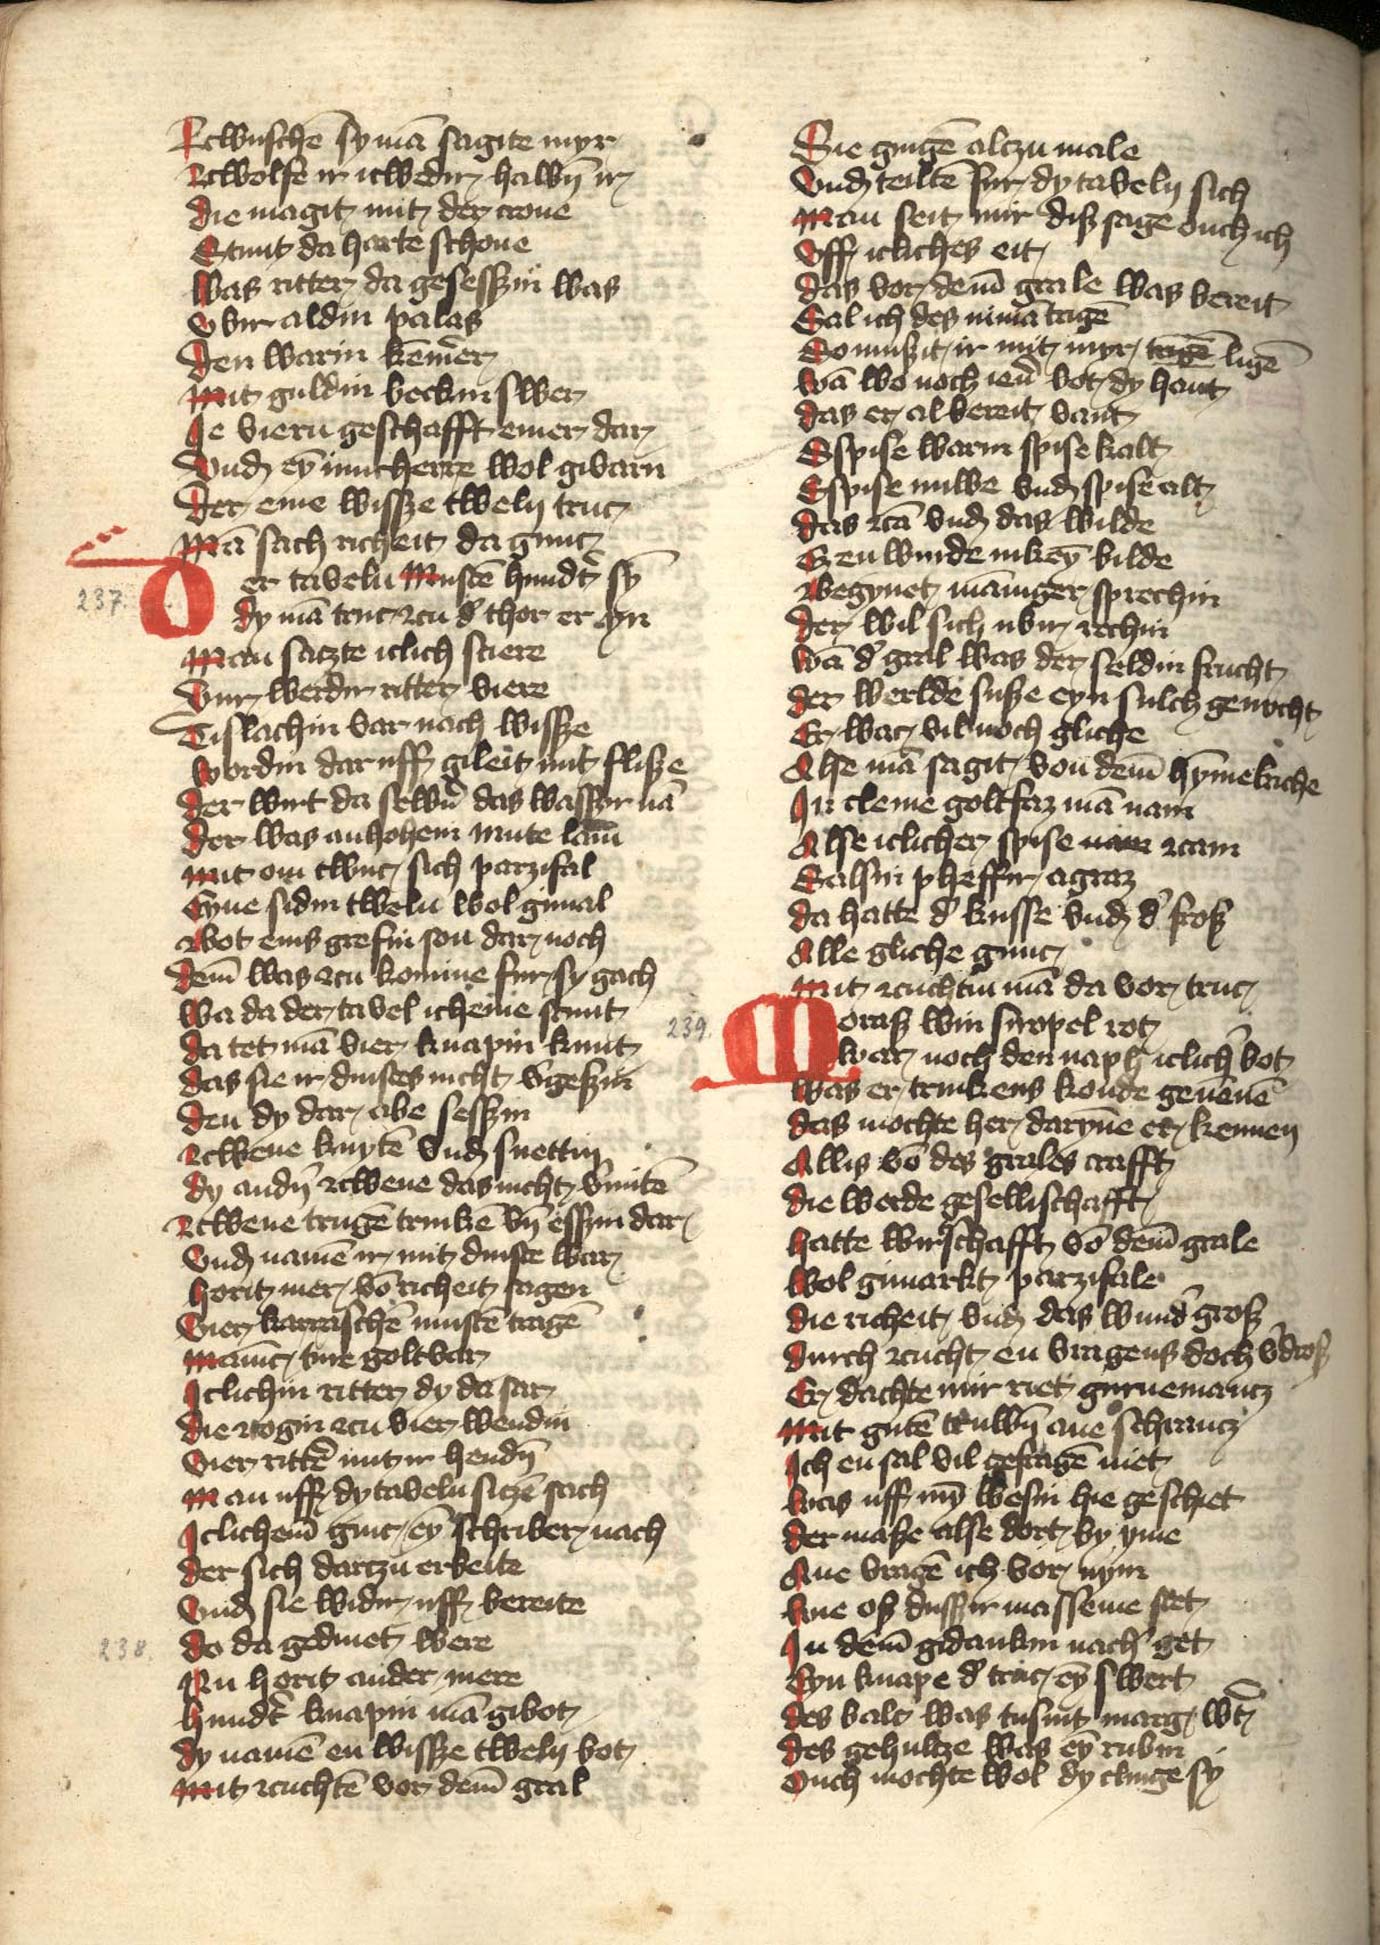 Zcwuschē sy mā sagite myr
Zcwolfe ir icwedir halbȳ ir
die magit mit der crone
Stunt da harte schone
Was ritter da gesesszin was
Vbir aldin palas
den warin kēmer̄
Mit guldin beckin swer
Je vieru geschafft einer dar
Vnd eȳ iuncherre wol givarn
Der eine wissze tweln truc
Mā sach richeit da gnuc
237.
Der taveln Mustē hundt̄ sy
dy mā truc zcu d' thor er eyn
Man satzte iclich sciere
Vur werdir ritter viere
Tislachin var nach wissze
Wordin dar uff gileit mit flisze
der wirt da selbir̄ das wassyr nā
der was an hohem mute lam̄
Mit om twuc sich parzifal
Eyne sidin tweln wol gimal
Bot eins grefin son dar noch
dem̄ was zcu komine fur sy gach
Wa da der tavel icheine stunt
da tet mā vier knapin kunt
das sie ir dinstes nicht v'geszin
den dy dar abe sesszin
Zcwene knytē vnd snettin
dy andȳ zcwene das nicht v'mitē
Zcwene trugē trinkē vn̄ esszin dar
Vnd namē ir mit dinste war
horit mer vō richeit sagen
Vier karraschē mustē tragē
Manic ture goltvar
Iclichin ritter dy da sar
die zcogin zcu vier wendin
Vier rittē mit ir hendȳ
Man uff dy taveln sitzē sach
Iclichem̄ ginc eȳ schriber nach
der sich dartzu erbeite
Vnd sie widir uff bereite
238.
do da gedinet were
Nu horit ander mere
hundt̄ knapin mā gibot
dy namē en wissze tweln bot
Mit zcuchtē vor dem̄ gral
Sie gingē alczu male
Vnd teiltē fur dy taveln sich
Man seit mir disz sage ouch ich
Uff icliches eit
das vor dem̄ grale was bereit
Sal ich des nimā tagē
So muszit ir mit myr tragē ligē
Wā wo noch ien̄ bot dy hant
das er al bereit vant
Spise warm spise kalt
Spise nuwe vnd spise alt
das zcā vnd das wilde
Szen wurde nikeȳ bilde
Begynet māniger sprechin
der wil sich ubir rechin
Wā d' gral was der seldin frucht
der werlde susze eyn sulch genucht
Er wac vil noch gliche
Alse mā sagit von dem̄ hȳmelriche
In cleine goltfaz mā nam
Alse iclicher spise nam zcam
Salsin pheffir agraz
da hatte d' kusse vnd d' frosz
Alle gliche gnuc
Mit zcuchtin mā da vor truc
239.
Morasz win siropel rot
war noch den naph iclich' bot
Was er trinkens konde genēnē
das mochte her darȳne er kennen
Allis vō des grales crafft
die werde gesellischafft
hatte wirtschafft vō dem̄ grale
Wol gimarkt parzifale
die richeit vnd das wund' grosz
durch zcucht en vragens doch v'drosz
Er dachte mir riet gurnemantz
Mit gutē truwȳ ane schrantz
Ich en sal vil gefragē niet
Was uff mȳ wesin hie geschiet
der masze alse dort by yme
Ane vragē ich vor nym
Wie osz diszir massenie stet
In dem̄ gidankin nach' get
Eyn knape d' truc eȳ swert
des balc was tusint marg w't
des gehultze was eȳ rubin
Ouch mochte wol dy clinge sy